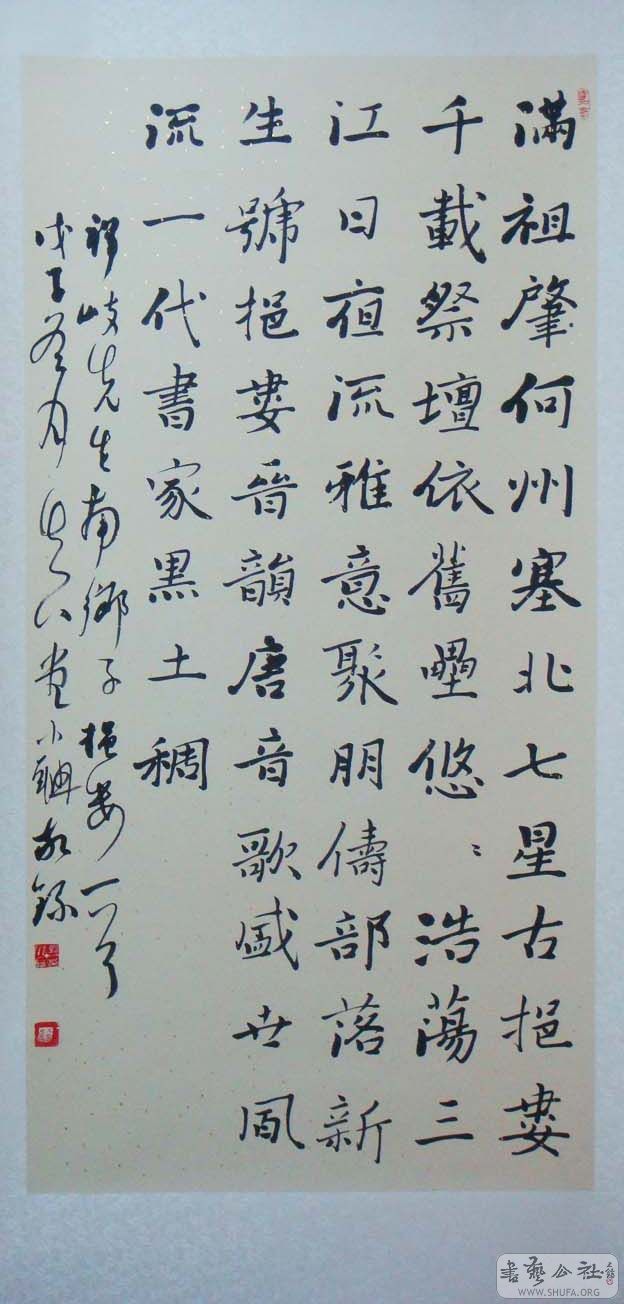 滿祖肇何州塞北七星古挹婁
千載祭壇依舊壘悠〻浩蕩三
江日夜流雅意聚朋儔部落新
生號挹婁晉韻唐音歌盛世風
流一代書家黑土稠
先生南鄉子挹婁一首
戊子冬月
書藝公社
WWW.SHUFA.ORG